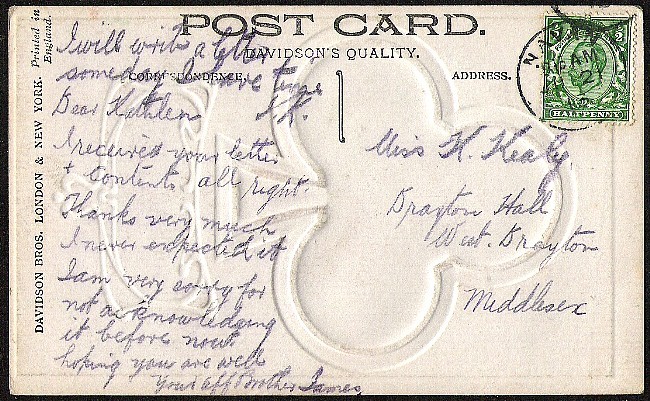 POST CARD.
DAVIDSON'S QUALITY.
CORRESPONDENCE.
ADDRESS.
DAVIDSON BROS. LONDON & NEW YORK.
Printed in
England.
HALFPENNY
I will write a letter
someday I have time
J.K.
Dear Kathleen
I received your letter
+ contents all right.
Thanks very much
I never expected it
I am very sorry for
not acknowledging
it before now
hoping you are well
Your aff Brother James
Miss K. Kealy
Drayton Hall
West. Drayton
Middlesex